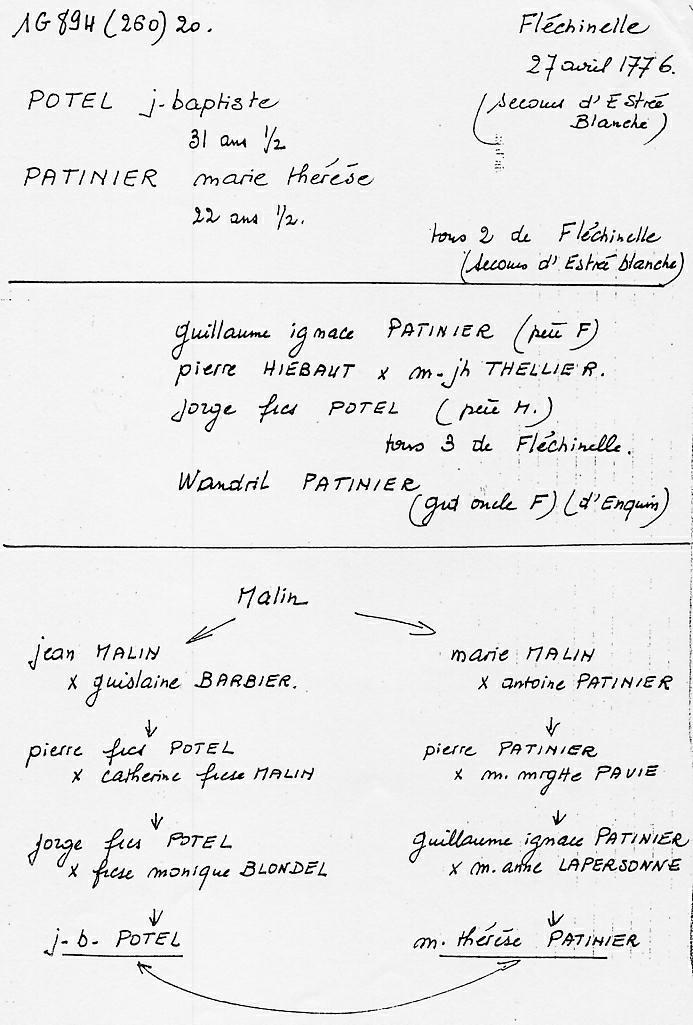 1G 894 (260) 20.
Fléchinelle
27 avril 1776.
(secours d'Estrée
Blanche)
POTEL j-baptiste
31 ans 1/2
PATINIER marie thérèse
22 ans 1/2.
tous 2 de Fléchinelle
(secours d'Estrée blanche)
guillaume ignace PATINIER (père F)
pierre HIEBAUT x m-jh THELLIER.
jorge fcis POTEL (père H.)
tous 3 de Fléchinelle.
Wandril PATINIER
(grd oncle F) (d'Enquin)
Malin
jean MALIN
x guislaine BARBIER.
marie MALIN
x antoine PATINIER
pierre fcis POTEL
x catherine fcse MALIN
pierre PATINIER
x m. mrgtte PAVIE
jorge fcis POTEL
x fcse monique BLONDEL
guillaume ignace PATINIER
x m. anne LAPERSONNE
j-b- POTEL
m. thérèse PATINIER